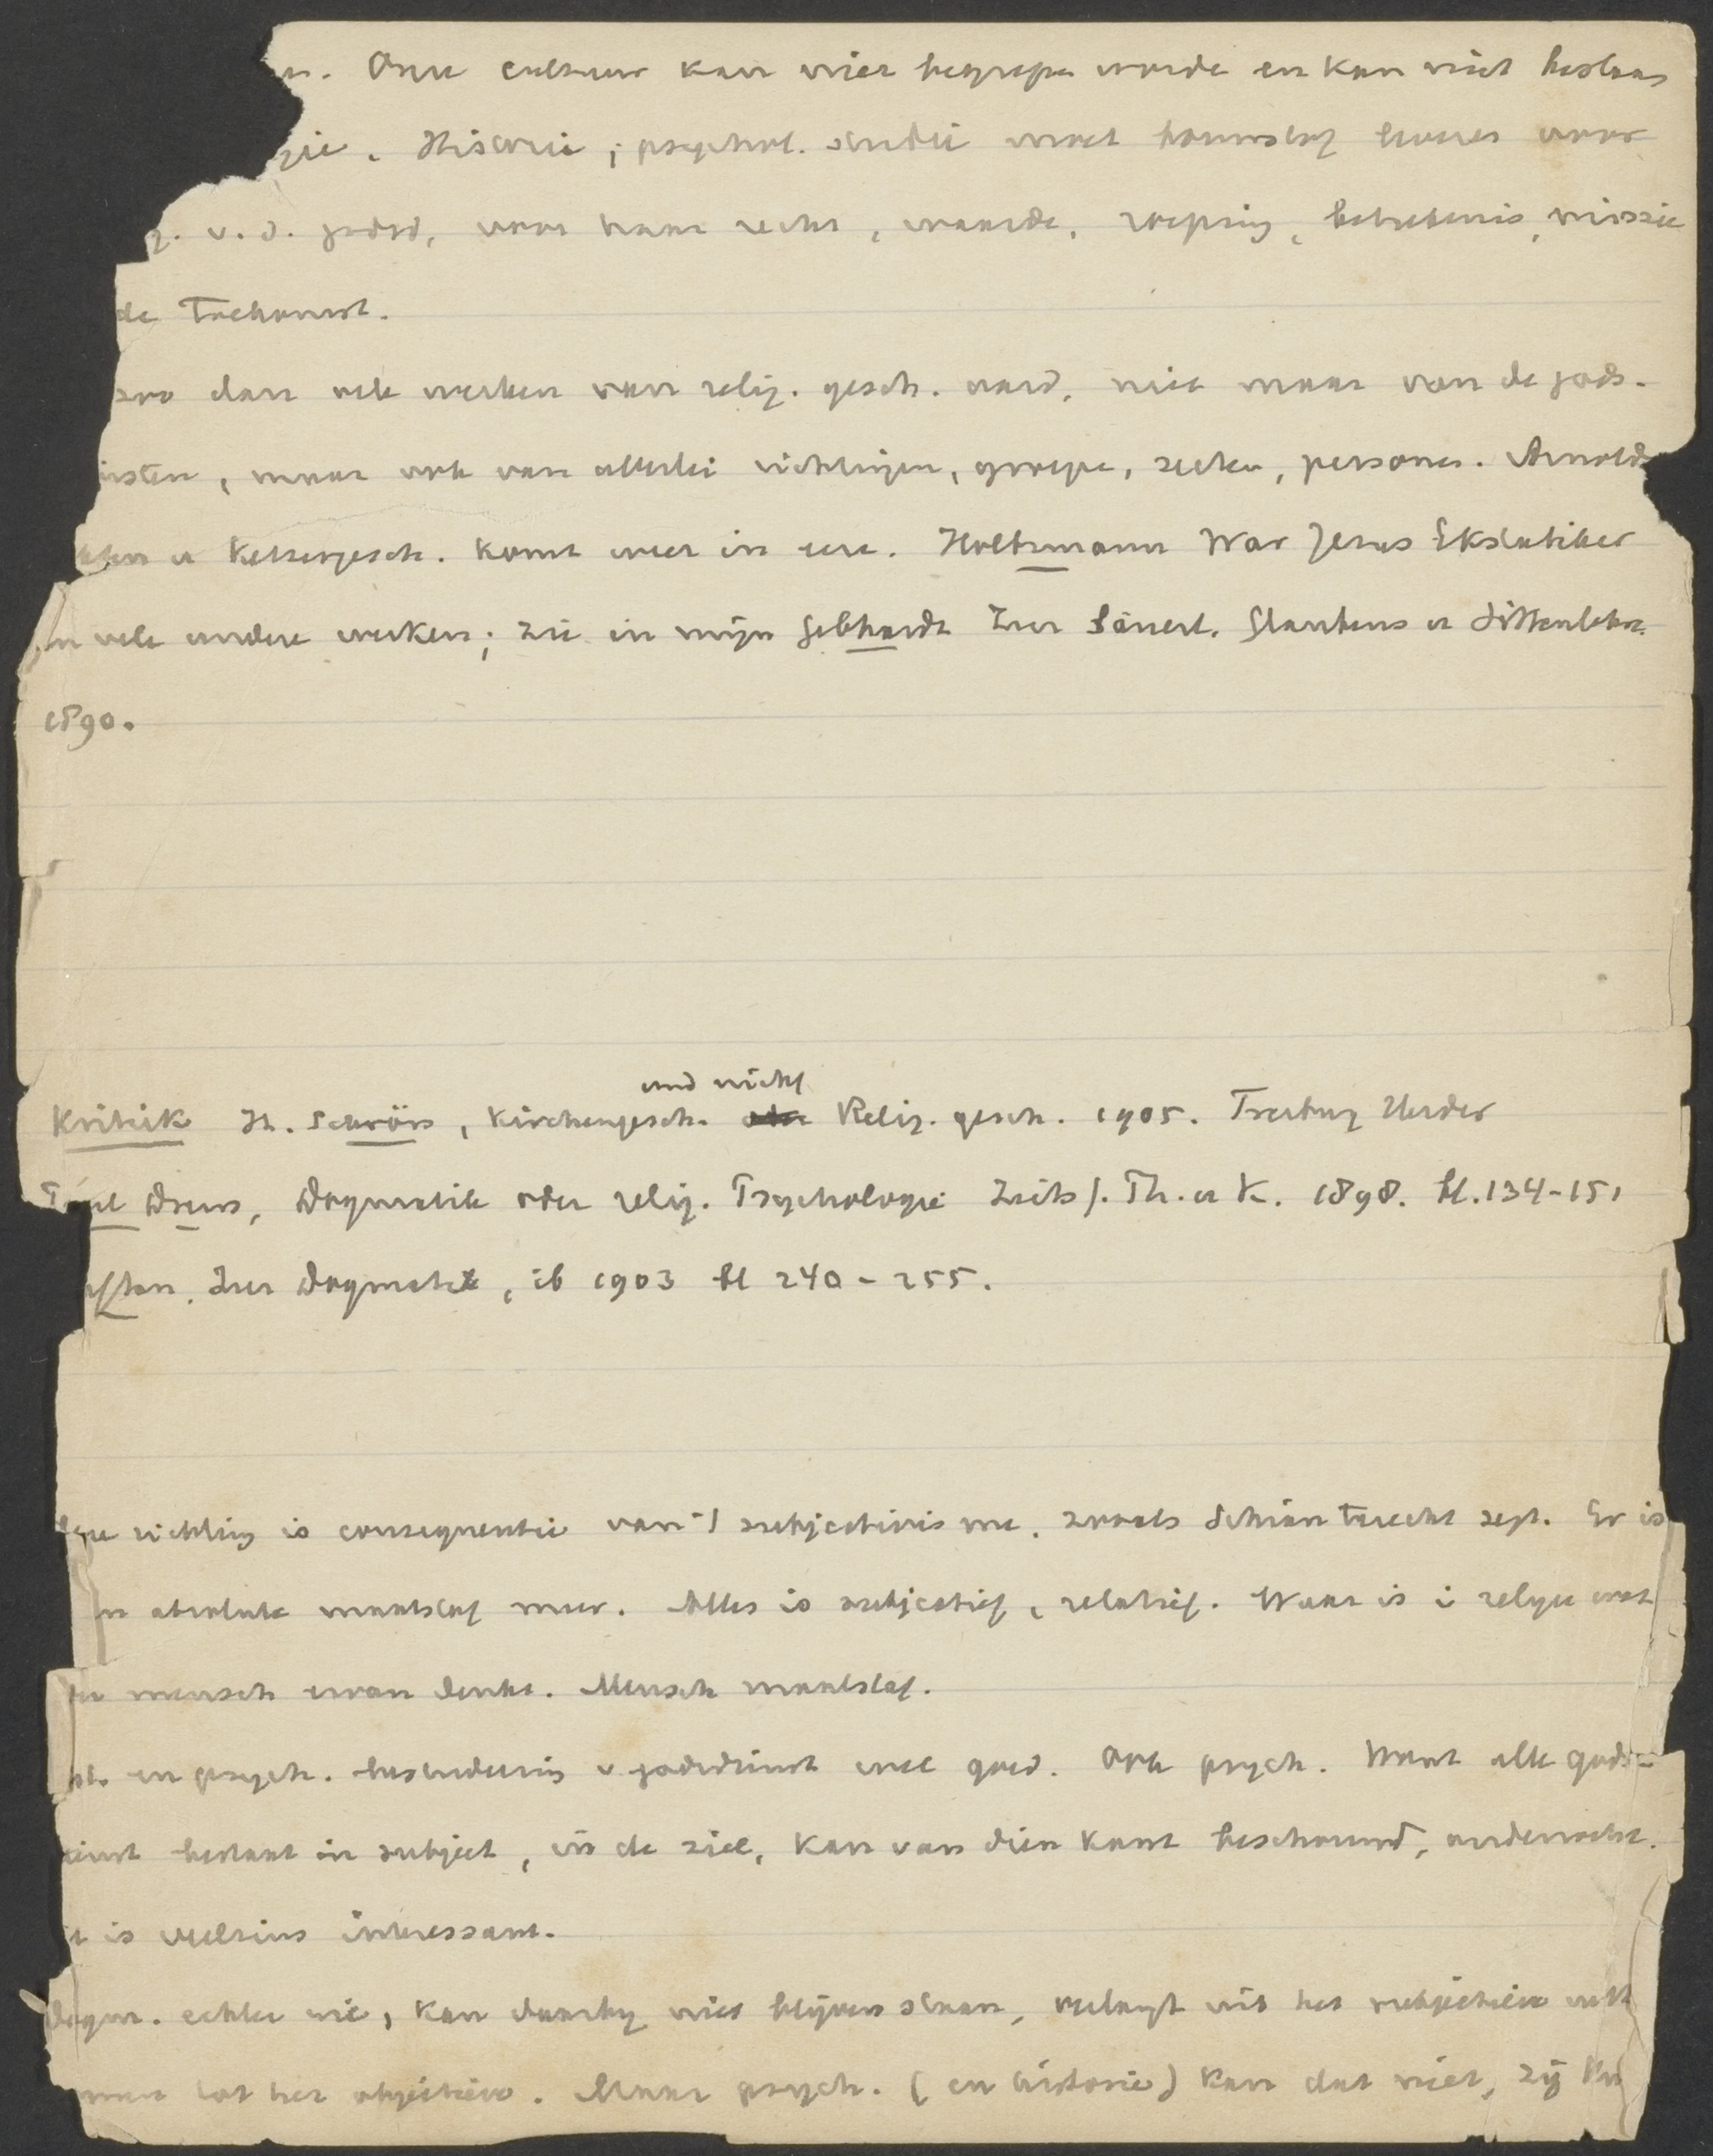 Onze cultuur kan niet begrepen worde en kan niet bestaan
gie. Historie, psychol. studie moet hoofdzaak leveren voor
v. d. godsd, voor haar recht, waarde, roeping, beteekenis, missie
de Toekomst.
zoo dan vele werken van relig. gesch. aard, niet maar van de gods-
nsten, maar ook van allerlei richtingen, groepe, secten, persones. Arnolds
Kirchen u Ketzergesch. komt weer in eere. Holtzmann War Jesus Ekstatiker
en vele andere werken; zie in mijn Gebhardt Zur Glaubens u Sittenlehre.
1890.
und nicht
Kritik H. Schrörs, Kirchengesch. Relig. gesch. 1905. Freiburg Herder
Paul Drews, Dogmatik oder relig. Psychologie Zeits f. Th. u K. 1898. bl. 134-151
aftan, Zur Dogmatik, ib 1903 bl 240-255.
richting is consequentie van 't subjectivisme, zooals Schian terecht zegt. Er is
en absolute maatstaf meer. Alles is subjectief, relatief. Waar is i religie wat
de mensch ervan denkt. Mensch maatstaf.
en psych. bestudeering v godsdienst wel goed. Ook psych. Want alle gods-
ienst bestaat in subject, in de ziel, kan van dien kant beschouwd, onderzocht.
t is veelzins interessant.
Dogm. echter wil, kan daarbij niet blijven staan, verlangt uit het subjectieve
tot het objectieve. Maar psych. (en historie) kan dat niet, zij